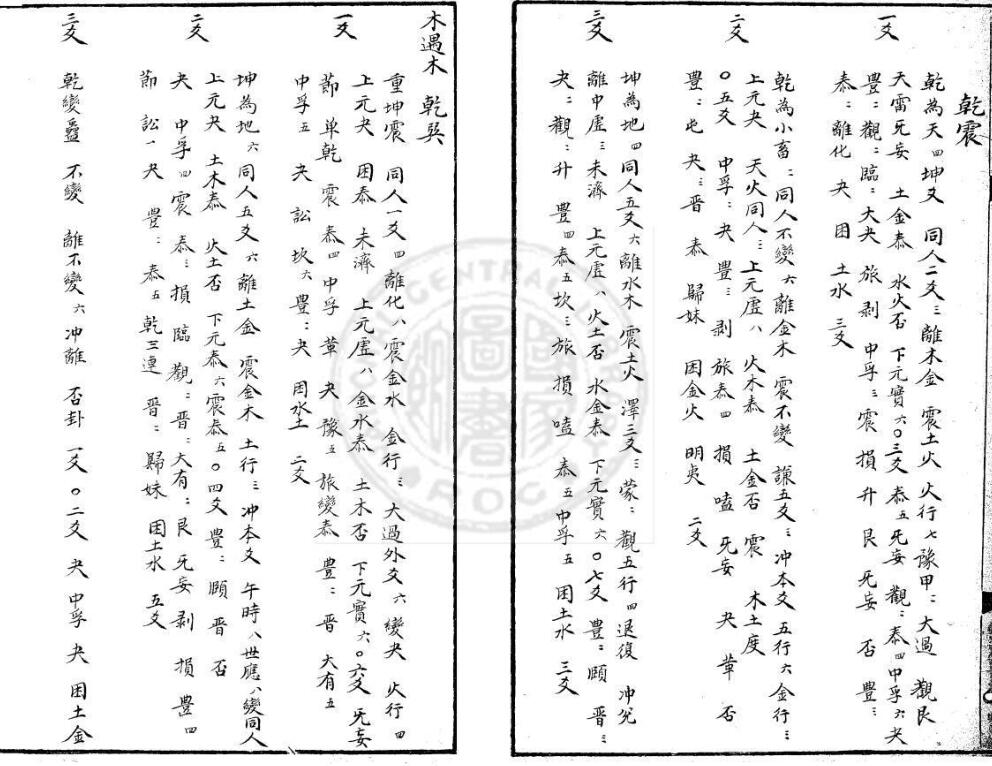 乾震
一爻
乾為天 四坤爻 同人二爻 三離木金 震土火 火行七豫甲二大過 觀艮
天雷旡妄 土金泰 水火否 下元實六〇三爻 泰五旡妄 觀二泰四中孚六夬
豊二觀二臨二大夬 旅剥 中孚三震 損 升 艮 旡妄 否 豊三
泰二離化 夬 困 土水 三爻
二爻
乾為小畜二同人不變六離金木 震不變 謙五爻三冲本爻 五行六金行三
上元夬 天火同人三上元虛八 火木泰 土金否 震 木土度
〇五爻 中孚二夬 豊三剥 旅泰四 損 嗑 旡妄 夬 革 否
豊二屯 夬三晋 泰 歸妹 困金火 明夷 二爻
三爻
坤為地四同人五爻六離水木 震土火 澤三爻三蒙二觀五行四退復 冲兌
離中虛三未濟 上元虛八火土否 水金泰 下元實六〇七爻 豊二頤 晋三
夬二觀二升 豊四泰五坎三旅 損 嗑 泰五中孚五 困土水 三爻
木遇木 乾巽
一爻
重坤震 同人一爻四離化八震金水 金行三大過外爻六變夬 火行四
上元夬 困泰 未濟 上元虛八金水泰 土木否 下元實六〇六爻 旡妄
節 单乾 震泰四中孚 革 夬 豫五旅變泰 豊二晋 大有五
中孚五 夬 訟 坎六豊二夬 困水土 二爻
二爻
坤為地六同人五爻六離土金 震金木 土行三冲本爻 午時八世應八變同人
上元夬 土木泰 火土否 下元泰六震泰五〇四爻 豊二頤 晋 否
夬 中孚四震 泰三損 臨 觀二晋二大有二艮 旡妄 剥 損 豊四
節 訟一夬 豊二泰五乾三連 晋二歸妹 困土水 五爻
三爻
乾變蠱 不變 離不變六冲離 否卦 一爻 〇二爻 夬 中孚 夬 困土金